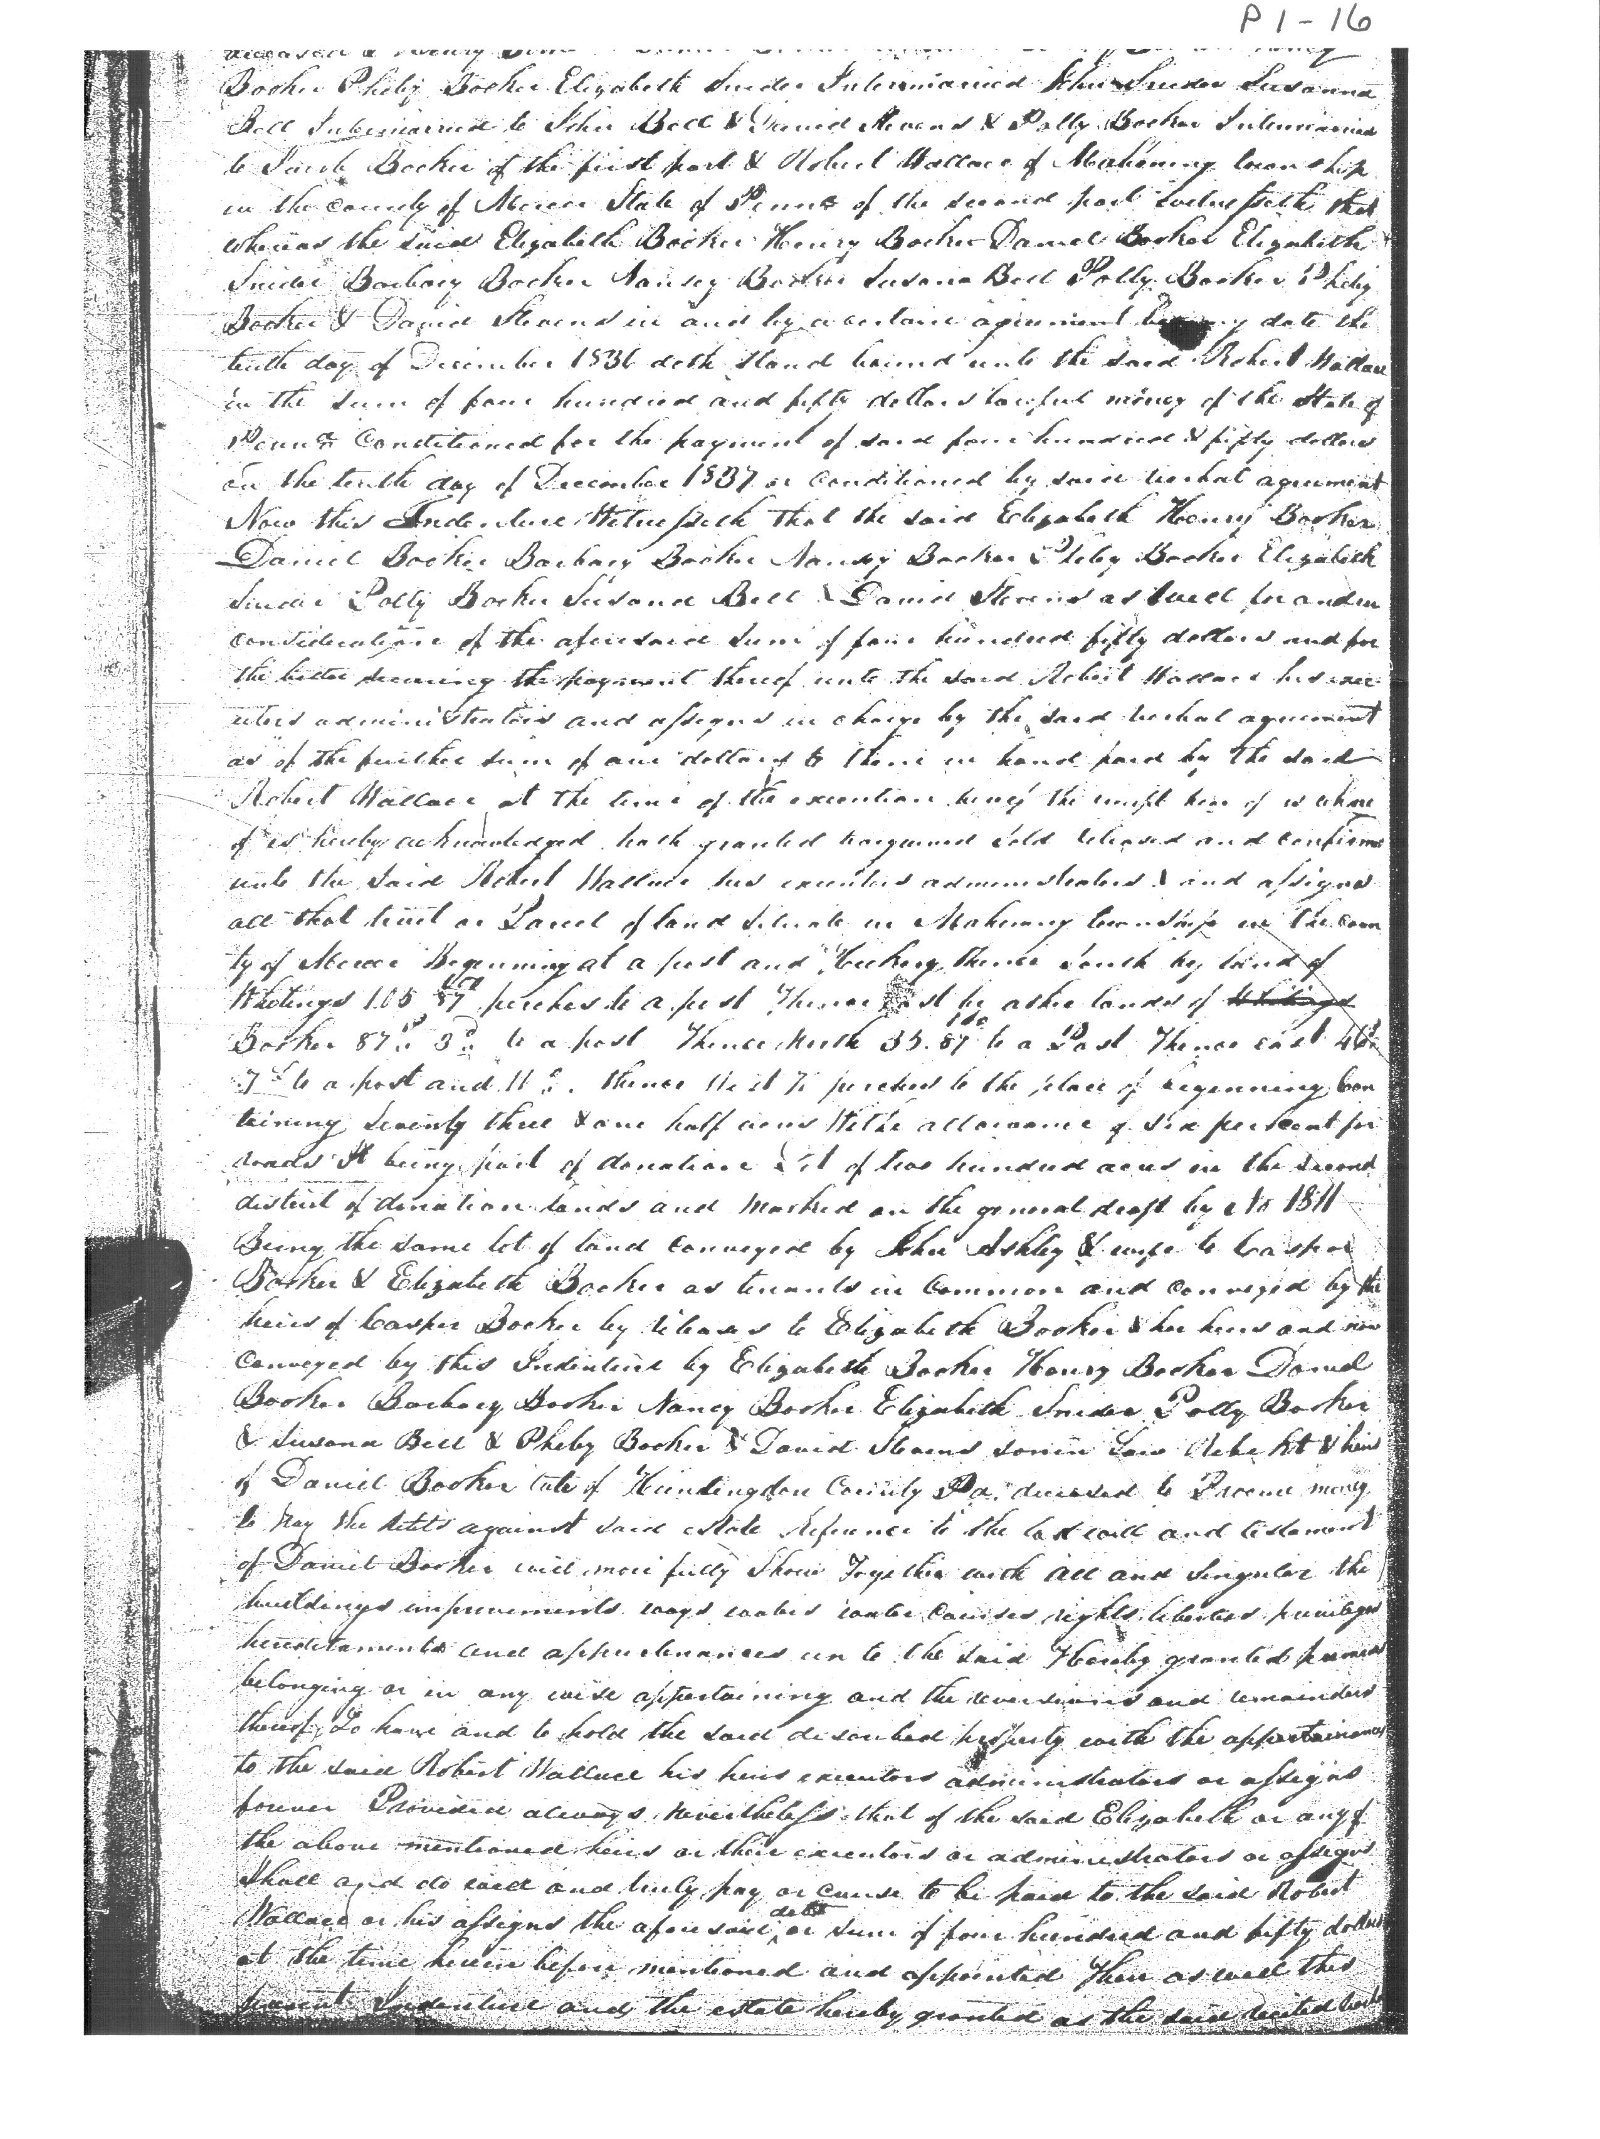 P 1-16
deceased & Henry
Booker Pheby Booker Elizabeth Snider Intermarried John Snider Susanna
Bell Intermarried to John Bell & David Stevens & Polly Booker Intermarried
to Jacob Booker of the first part & Robert Wallace of Mahoning township
in the county of Mercer State of Penna of the second part Witnesseth that
whereas the said Elizabeth Booker Henry Booker Daniel Booker Elizabeth
Snider Barbary Booker Nansey Booker Susana Bell Polly Booker Pheby
Booker & David Stevens in and by a certain agreement bearing date the
tenth day of December 1836 doth stand bound unto the said Robert Wallace
in the sum of four hundred and fifty dollars lawful money of the State of
Penna Conditioned for the payment of said four hundred & fifty dollars
on the tenth day of December 1837 as conditioned by said verbal agreement
Now this Indenture Witnesseth that the said Elizabeth Henry Booker
Daniel Booker Barbary Booker Nansey Booker Pheby Booker Elizabeth
Snider Polly Booker Susana Bell & David Stevens as well for and in
consideration of the aforesaid sum of four hundred fifty dollars and for
the better securing the payment thereof unto the said Robert Wallace his exec
utors administrators and assigns in charge by the said verbal agreement
as of the further sum of one dollar to them in hand paid by the said
Robert Wallace at the time of the execution hereof the receipt
of is hereby acknowledged hath granted bargained sold released and confirmed
unto the said Robert Wallace his executors administrators & and assigns
all that tract or Parcel of land situate in Mahoning township in the coun
ty of Mercer Beginning at a post and Hickory thence South by land of
Whitings 105 87 perches to a post Thence East by other lands of Whitings
Booker 87 3 to a post Thence North 35.87 to a Post Thence east 46
7 to a post and thence West perches to the place of beginning Con
taining Seventy three & one half acres With allowance of Six per cent for
roads It being part of donation Lot of two hundred acres in the second
district of donation lands and marked on the general draft by No 1811
Being the same lot of land conveyed by John Ashley & wife to Casper
Booker & Elizabeth Booker as tenants in Common and conveyed by the
heirs of Casper Booker by releases to Elizabeth Booker & her heirs and now
conveyed by this Indenture by Elizabeth Booker Henry Booker Daniel
Booker Barbary Booker Nancy Booker Elizabeth Snider Polly Booker
& Susana Bell & Pheby Booker & David Stevens son in Law & heirs
of Daniel Booker late of Huntingdon County Pa. deceased to Procure money
to Pay the debts against said estate Referance to the last will and testament
of Daniel Booker will more fully Show Together with all and Singular the
buildings improvements ways waters water Courses rights liberties privileges
hereditaments and appurtenances un to the said Hereby granted premises
belonging or in any wise appertaining and the reversions and remainders
thereof To have and to hold the said discribed property with the appertainances
to the said Robert Wallace his heirs executors administrators or assigns
forever Provided always nevertheless that if the said Elizabeth or any of
the above mentioned heirs or their executors or administrators or assigns
Shall and do well and truly pay or cause to be paid to the said Robert
Wallace or his assigns the aforesaid debt or sum of four hundred and fifty dollars
at the time herein before mentioned and appointed Then as well this
present Indenture and the estate hereby granted as the said recited